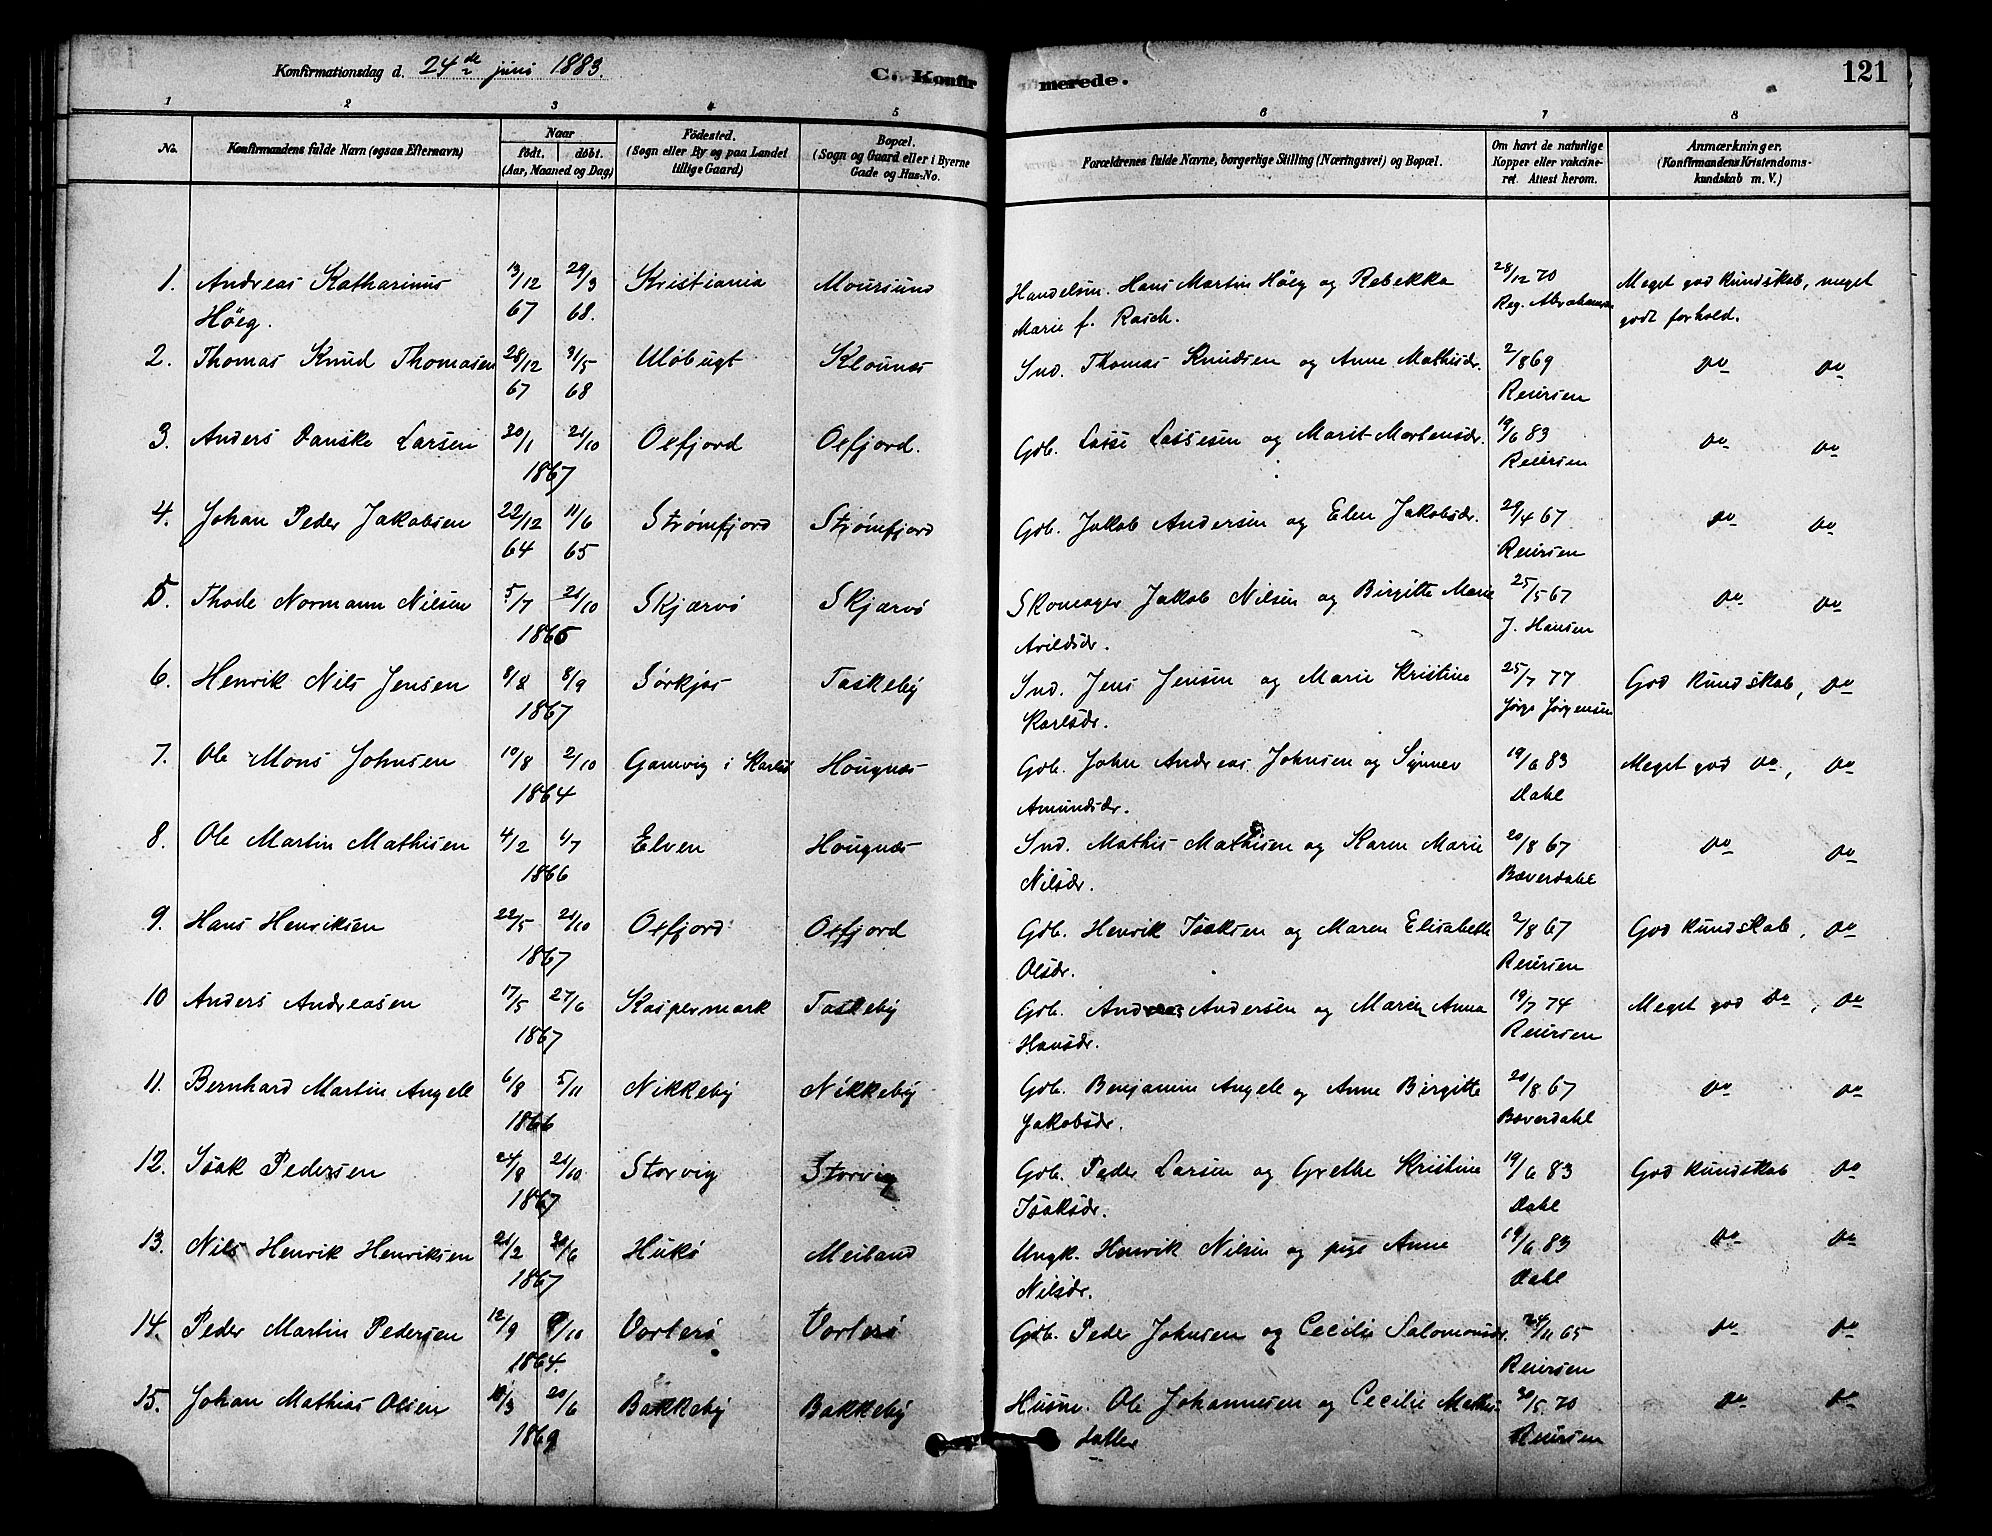 Konfirmationsdag d. 24de juni 1883. C. Konfir merede. 121
1 2 3 4 5 6 7 8
No. Konfirmandens fulde Navn (ogsaa Efternavn) Naar født. døbt. (Aar, Maaned og Dag) Födested. (Sogn eller By og paa Landet tillige Gaard) Bopæl. (Sogn og Gaard eller i Byerne Gade og Hus-No. Forældrenes fulde Navne, borgerlige Stilling (Næringsvei) og Bopæl. Om havt de naturlige Kopper eller vakcineret. Attest herom. Anmærkninger. (Konfirmandens Kristendomskundskab m. V.)
1. Andreas Katharinus 13/12 29/3 Kristiania Moursund Handelsm. Hans Martin Höeg og Rebekka 28/12 70 Meget god kundskab, meget
Höeg. 67 68. Marie f. Rasch. Reg. godt forhold.
2. Thomas Knud Thomasen 28/12 31/5 Uløbugt Klounæs Ind. Thomas Knudsen og Anne Mathisdr. 2/8 69 do do
67 68 Reiersen
3. Anders Danske Larsen 30/1 21/10 Oxfjord Oxfjord. Gdb. Lasse Lassesen og Marit Mortensdr. 19/6 83 do do
1867 Reiersen
4. Johan Peder Jakobsen 22/12 11/6 Strømfjord Strømfjord Gdb. Jakob Andersen og Elen Jakobsdr. 29/4 67 do do
64 65 Reiersen
5. Thode Normann Nilsen 5/7 21/10 Skjærvö Skjærvö Skomager Jakob Nilsen og Birgitte Marie 25/5 67 do do
1866 Arildsdr. J. Hansen
6. Henrik Nils Jensen 8/8 8/9 Sørkjos Taskeby Ind. Jens Jensen og Marie Kristine 25/7 77 God kundskab, do
1867 Karlsdr. Jørg. Jørgensen
7. Ole Mons Johnsen 10/8 2/10 Gamvig i Karlsö Hougnæs Gdb. John Andreas Johnsen og Synnev 19/6 83 Meget god do, do
1864 Amundsdr. Dahl
8. Ole Martin Mathisen 4/2 1/7 Elven Hougnæs Ind. Mathis Mathisen og Karen Marie 20/8 67 do do
1866 Nilsdr. Bæverdahl
9. Hans Henriksen 22/5 21/10 Oxfjord Oxfjord Gdb. Henrik Isaksen og Maren Elisabeth 2/8 67 God kundskab, do
1867 Olsdr. Reiersen
10 Anders Andreasen 17/5 27/6 Kaspermark Taskeby Gdb. Andreas Andersen og Maren Anna 19/7 74 Meget god do, do
1867 Hansdr. Reiersen
11. Bernhard Martin Angell 6/8 5/11 Nikkeby Nikkeby Gdb. Benjamin Angell og Anne Birgitte 20/8 67 do do
1866 Jakobsdr. Bæverdahl
12. Isak Pedersen 24/8 21/10 Storvig Storvig Gdb. Peder Larsen og Grethe Kristine 19/6 83 God kundskab do
1867 Isaksdr. Dahl
13. Nils Henrik Henriksen 21/2 20/6 Hukö Meiland Ungk. Henrik Nilsen og pige Anne 19/6 83 do do
1867 Nilsdr. Dahl
14. Peder Martin Pedersen 12/9 9/10 Vorterö Vorterö Gdb. Peder Johnsen og Cecilie Salomonsdr. 24/11 65 do do
1864. Reiersen
15. Johan Mathias Olsen 10/3 20/6 Bakkeby Bakkeby Husm. Ole Johannesen og Cecilie Mathis 30/5 70 do do
1869 datter Reiersen